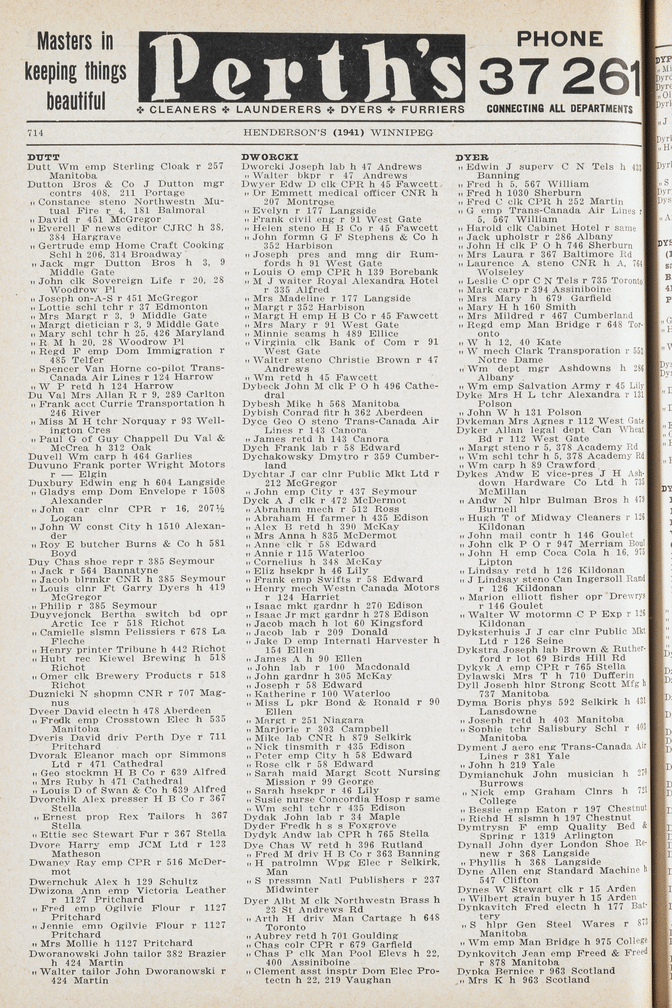 Masters in
keeping things
beautiful
Perth's
❖ CLEANERS ❖ LAUNDERERS ❖ DYERS ❖ FURRIERS
PHONE
37 261
CONNECTING ALL DEPARTMENTS
714
HENDERSON'S (1941) WINNIPEG
DUTT
Dutt Wm emp Sterling Cloak r 257
Manitoba
Dutton Bros & Co J Dutton mgr
contrs 408, 211 Portage
„ Constance steno Northwestn Mu-
tual Fire r 4, 181 Balmoral
„ David r 451 McGregor
„ Everell F news editor CJRC h 38,
384 Hargrave
„ Gertrude emp Home Craft Cooking
Schl h 206, 314 Broadway
„ Jack mgr Dutton Bros h 3, 9
Middle Gate
„ John clk Sovereign Life r 20, 28
Woodrow Pl
„ Joseph on-A-S r 451 McGregor
„ Lottie schl tchr r 37 Edmonton
„ Mrs Margt r 3, 9 Middle Gate
„ Margt dietician r 3, 9 Middle Gate
„ Mary schl tchr h 25, 426 Maryland
„ R M h 20, 28 Woodrow Pl
„ Regd F emp Dom Immigration r
485 Telfer
„ Spencer Van Horne co-pilot Trans-
Canada Air Lines r 124 Harrow
„ W P retd h 124 Harrow
Du Val Mrs Allan R r 9, 289 Carlton
„ Frank acct Currie Transportation h
246 River
„ Miss M H tchr Norquay r 93 Well-
ington Cres
„ Paul G of Guy Chappell Du Val &
McCrea h 312 Oak
Duvell Wm carp h 464 Garlies
Duvuno Frank porter Wright Motors
r — Elgin
Duxbury Edwin eng h 604 Langside
„ Gladys emp Dom Envelope r 1508
Alexander
„ John car clnr CPR r 16, 207½
Logan
„ John W const City h 1510 Alexan-
der
„ Roy E butcher Burns & Co h 581
Boyd
Duy Chas shoe repr r 385 Seymour
„ Jack r 564 Bannatyne
„ Jacob blrmkr CNR h 385 Seymour
„ Louis clnr Ft Garry Dyers h 419
McGregor
„ Philip r 385 Seymour
Duyvejonck Bertha switch bd opr
Arctic Ice r 518 Richot
„ Camielle slsmn Pelissiers r 678 La
Fleche
„ Henry printer Tribune h 442 Richot
„ Hubt rec Kiewel Brewing h 518
Richot
„ Omer clk Brewery Products r 518
Richot
Duznicki N shopmn CNR r 707 Mag-
nus
Dveer David electn h 478 Aberdeen
„ Fredk emp Crosstown Elec h 535
Manitoba
Dveris David driv Perth Dye r 711
Pritchard
Dvorak Eleanor mach opr Simmons
Ltd r 471 Cathedral
„ Geo stockmn H B Co r 639 Alfred
„ Mrs Ruby h 471 Cathedral
„ Louis D of Swan & Co h 639 Alfred
Dvorchik Alex presser H B Co r 367
Stella
„ Ernest prop Rex Tailors h 367
Stella
„ Ettie sec Stewart Fur r 367 Stella
Dvore Harry emp JCM Ltd r 123
Matheson
Dwaney Ray emp CPR r 516 McDer-
mot
Dwernchuk Alex h 129 Schultz
Dwizona Ann emp Victoria Leather
r 1127 Pritchard
„ Fred emp Ogilvie Flour r 1127
Pritchard
„ Jennie emp Ogilvie Flour r 1127
Pritchard
„ Mrs Mollie h 1127 Pritchard
Dworanowski John tailor 382 Brazier
h 424 Martin
„ Walter tailor John Dworanowski r
424 Martin
DWORCKI
Dworcki Joseph lab h 47 Andrews
„ Walter bkpr r 47 Andrews
Dwyer Edw D clk CPR h 45 Fawcett
„ Dr Emmett medical officer CNR h
207 Montrose
„ Evelyn r 177 Langside
„ Frank civil eng r 91 West Gate
„ Helen steno H B Co r 45 Fawcett
„ John formn G F Stephens & Co h
352 Harbison
„ Joseph pres and mng dir Rum-
fords h 91 West Gate
„ Louis O emp CPR h 139 Borebank
„ M J waiter Royal Alexandra Hotel
r 335 Alfred
„ Mrs Madeline r 177 Langside
„ Margt r 352 Harbison
„ Margt H emp H B Co r 45 Fawcett
„ Mrs Mary r 91 West Gate
„ Minnie seams h 489 Ellice
„ Virginia clk Bank of Com r 91
West Gate
„ Walter steno Christie Brown r 47
Andrews
„ Wm retd h 45 Fawcett
Dybeck John M clk P O h 496 Cathe-
dral
Dybesh Mike h 568 Manitoba
Dybish Conrad fitr h 362 Aberdeen
Dyce Geo O steno Trans-Canada Air
Lines r 143 Canora
„ James retd h 143 Canora
Dych Frank lab r 58 Edward
Dychakowsky Dmytro r 359 Cumber-
land
Dychtar J car clnr Public Mkt Ltd r
212 McGregor
„ John emp City r 437 Seymour
Dyck A J clk r 472 McDermot
„ Abraham mech r 512 Ross
„ Abraham H farmer h 435 Edison
„ Alex B retd h 390 McKay
„ Mrs Anna h 835 McDermot
„ Anne clk r 58 Edward
„ Annie r 115 Waterloo
„ Cornelius h 348 McKay
„ Eliz hsekpr h 46 Lily
„ Frank emp Swifts r 58 Edward
„ Henry mech Westn Canada Motors
r 124 Harriet
„ Isaac mkt gardnr h 270 Edison
„ Isaac Jr mgt gardnr h 278 Edison
„ Jacob mach h lot 60 Kingsford
„ Jacob lab r 209 Donald
„ Jake D emp Internatl Harvester h
154 Ellen
„ James A h 90 Ellen
„ John lab r 100 Macdonald
„ John gardnr h 305 McKay
„ Joseph r 58 Edward
„ Katherine r 100 Waterloo
„ Miss L pkr Bond & Ronald r 90
Ellen
„ Margt r 251 Niagara
„ Marjorie r 303 Campbell
„ Mike lab CNR h 879 Selkirk
„ Nick tinsmith r 435 Edison
„ Peter emp City h 58 Edward
„ Rose clk r 58 Edward
„ Sarah maid Margt Scott Nursing
Mission r 99 George
„ Sarah hsekpr r 46 Lily
„ Susie nurse Concordia Hosp r same
„ Wm schl tchr r 435 Edison
Dydak John lab r 34 Maple
Dyder Fredk h s s Foxgrove
Dydyk Andw lab CPR h 765 Stella
Dye Chas W retd h 396 Rutland
„ Fred M driv H B Co r 363 Banning
„ H patrolmn Wpg Elec r Selkirk,
Man
„ S pressmn Natl Publishers r 237
Midwinter
Dyer Albt M clk Northwestn Brass h
23 St Andrews Rd
„ Arth H driv Man Cartage h 648
Toronto
„ Aubrey retd h 701 Goulding
„ Chas colr CPR r 679 Garfield
„ Chas P clk Man Pool Elevs h 22,
400 Assiniboine
„ Clement asst insptr Dom Elec Pro-
tectn h 22, 219 Vaughan
DYER
„ Edwin J superv C N Tels h 433
Banning
„ Fred h 5, 567 William
„ Fred h 1030 Sherburn
„ Fred C clk CPR h 252 Martin
„ G emp Trans-Canada Air Lines r
5, 567 William
„ Harold clk Cabinet Hotel r same
„ Jack upholstr r 286 Albany
„ John H clk P O h 746 Sherburn
„ Mrs Laura r 367 Baltimore Rd
„ Laurence A steno CNR h A, 764
Wolseley
„ Leslie C opr C N Tels r 735 Toronto
„ Mark carp r 394 Assiniboine
„ Mrs Mary h 679 Garfield
„ Mary H h 160 Smith
„ Mrs Mildred r 467 Cumberland
„ Regd emp Man Bridge r 648 Tor-
onto
„ W h 12, 40 Kate
„ W mech Clark Transporation r 552
Notre Dame
„ Wm dept mgr Ashdowns h 286
Albany
„ Wm emp Salvation Army r 45 Lily
Dyke Mrs H L tchr Alexandra r 131
Polson
„ John W h 131 Polson
Dykeman Mrs Agnes r 112 West Gate
Dyker Allan legal dept Can Wheat
Bd r 112 West Gate
„ Margt steno r 5, 378 Academy Rd
„ Wm schl tchr h 5, 378 Academy Rd
„ Wm carp h 89 Crawford
Dykes Andw E vice-pres J H Ash-
down Hardware Co Ltd h 735
McMillan
„ Andw N hlpr Bulman Bros h 479
Burnell
„ Hugh T of Midway Cleaners r 126
Kildonan
„ John mail contr h 146 Goulet
„ John clk P O r 947 Merriam Boul
„ John H emp Coca Cola h 16, 975
Lipton
„ Lindsay retd h 126 Kildonan
„ J Lindsay steno Can Ingersoll Rand
r 126 Kildonan
„ Marion elliott fisher opr Drewrys
r 146 Goulet
„ Walter W motormn C P Exp r 126
Kildonan
Dyksterhuis J J car clnr Public Mkt
Ltd r 126 Seine
Dykstra Joseph lab Brown & Ruther-
ford r lot 69 Birds Hill Rd
Dykyk A emp CPR r 765 Stella
Dylawski Mrs T h 710 Dufferin
Dyll Joseph hlpr Strong Scott Mfg h
737 Manitoba
Dyma Boris phys 592 Selkirk h 431
Lansdowne
„ Joseph retd h 403 Manitoba
„ Sophie tchr Salisbury Schl r 403
Manitoba
Dyment J aero eng Trans-Canada Air
Lines r 381 Yale
„ John h 219 Yale
Dymianchuk John musician h 270
Burrows
„ Nick emp Graham Clnrs h 721
College
„ Bessie emp Eaton r 197 Chestnut
„ Richd H slsmn h 197 Chestnut
Dymtrysn F emp Quality Bed &
Spring r 1319 Arlington
Dynall John dyer London Shoe Re-
new r 368 Langside
„ Phyllis h 368 Langside
Dyne Allen eng Standard Machine h
547 Clifton
Dynes W Stewart clk r 15 Arden
„ Wilbert grain buyer h 15 Arden
Dynkavitch Fred electn h 177 Bat-
tery
„ S hlpr Gen Steel Wares r 875
Manitoba
„ Wm emp Man Bridge h 975 College
Dynkovitch Jean emp Freed & Freed
r 878 Manitoba
Dypka Bernice r 963 Scotland
„ Mrs K h 963 Scotland